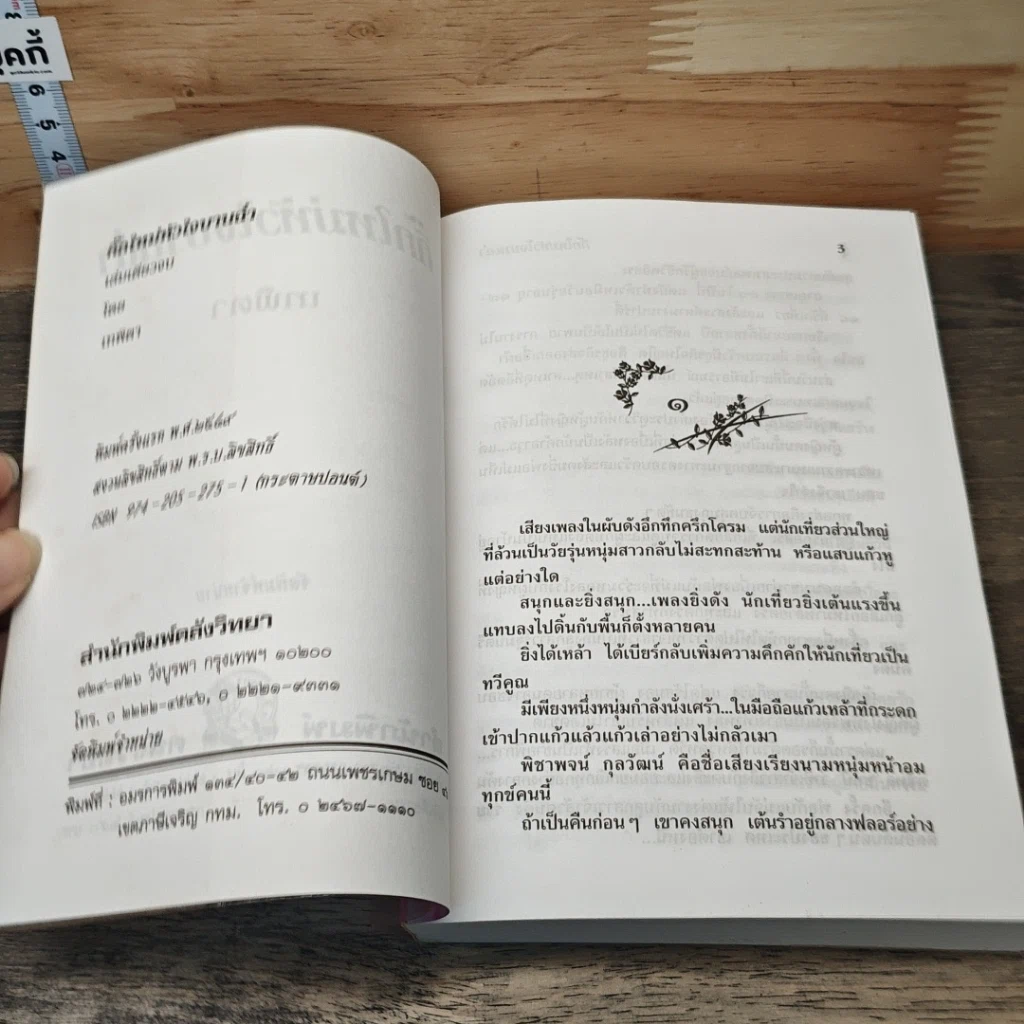 คึกใหม่หัวใจบานฉ่ำ
เล่มเดียวจบ
โดย
เทพิตา
พิมพ์ครั้งแรก พ.ศ.๒๕๔๙
สงวนลิขสิทธิ์ตาม พ.ร.บ.ลิขสิทธิ์
ISBN 974-205-275-1 (กระดาษปอนด์)
สำนักพิมพ์คลังวิทยา
๗๒๔-๗๒๖ วังบูรพา กรุงเทพฯ ๑๐๒๐๐
โทร. ๐ ๒๒๒๒-๔๕๔๖, ๐ ๒๒๒๑-๙๓๓๑
จัดพิมพ์จำหน่าย
พิมพ์ที่ : อมรการพิมพ์ ๑๓๔/๔๐-๔๒ ถนนเพชรเกษม ซอย
เขตภาษีเจริญ กทม. โทร. ๐ ๒๔๖๗-๑๑๑๐
3
๑
เสียงเพลงในผับดังอึกทึกครึกโครม แต่นักเที่ยวส่วนใหญ่
ที่ล้วนเป็นวัยรุ่นหนุ่มสาวกลับไม่สะทกสะท้าน หรือแสบแก้วหู
แต่อย่างใด
สนุกและยิ่งสนุก...เพลงยิ่งดัง นักเที่ยวยิ่งเต้นแรงขึ้น
แทบลงไปดิ้นกับพื้นก็ตั้งหลายคน
ยิ่งได้เหล้า ได้เบียร์กลับเพิ่มความคึกคักให้นักเที่ยวเป็น
ทวีคูณ
มีเพียงหนึ่งหนุ่มกำลังนั่งเศร้า...ในมือถือแก้วเหล้าที่กระดก
เข้าปากแก้วแล้วแก้วเล่าอย่างไม่กลัวเมา
พิชาพจน์ กุลวัฒน์ คือชื่อเสียงเรียงนามหนุ่มหน้าอม
ทุกข์คนนี้
ถ้าเป็นคืนก่อนๆ เขาคงสนุก เต้นรำอยู่กลางฟลอร์อย่าง